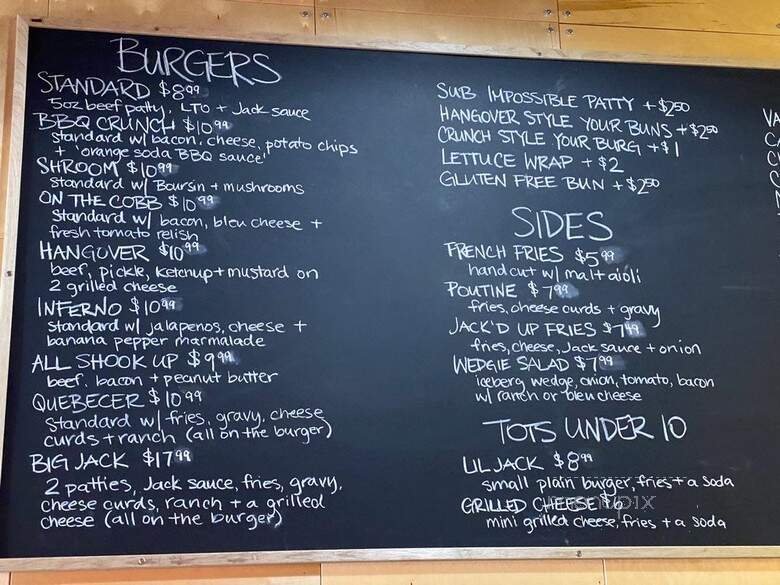 BURGERS
STANDARD $8.99
5oz beef patty, LTO + Jack sauce
BBQ CRUNCH $10.99
standard w/ bacon, cheese, potato chips
+ 'orange soda BBQ sauce'
SHROOM $10.99
standard w/ Boursin + mushrooms
ON THE COBB $10.99
standard w/ bacon, bleu cheese +
fresh tomato relish
HANGOVER $10.99
beef, pickle, ketchup + mustard on
2 grilled cheese
INFERNO $10.99
standard w/ jalapenos, cheese +
banana pepper marmalade
ALL SHOOK UP $9.99
beef, bacon + peanut butter
QUEBECER $10.99
standard w/ fries, gravy, cheese
curds + ranch (all on the burger)
BIG JACK $17.99
2 patties, Jack sauce, fries, gravy,
cheese curds, ranch + a grilled
cheese (all on the burger)
SUB IMPOSSIBLE PATTY +$2.50
HANGOVER STYLE YOUR BUNS +$2.50
CRUNCH STYLE YOUR BURG +$1
LETTUCE WRAP +$2
GLUTEN FREE BUN +$2.50
SIDES
FRENCH FRIES $5.99
hand cut w/ malt aioli
POUTINE $7.99
fries, cheese curds + gravy
JACK'D UP FRIES $7.99
fries, cheese, Jack sauce + onion
WEDGIE SALAD $7.99
iceberg wedge, onion, tomato, bacon
w/ ranch or bleu cheese
TOTS UNDER 10
LIL JACK $8.99
small plain burger, fries + a soda
GRILLED CHEESE $6
mini grilled cheese, fries + a soda